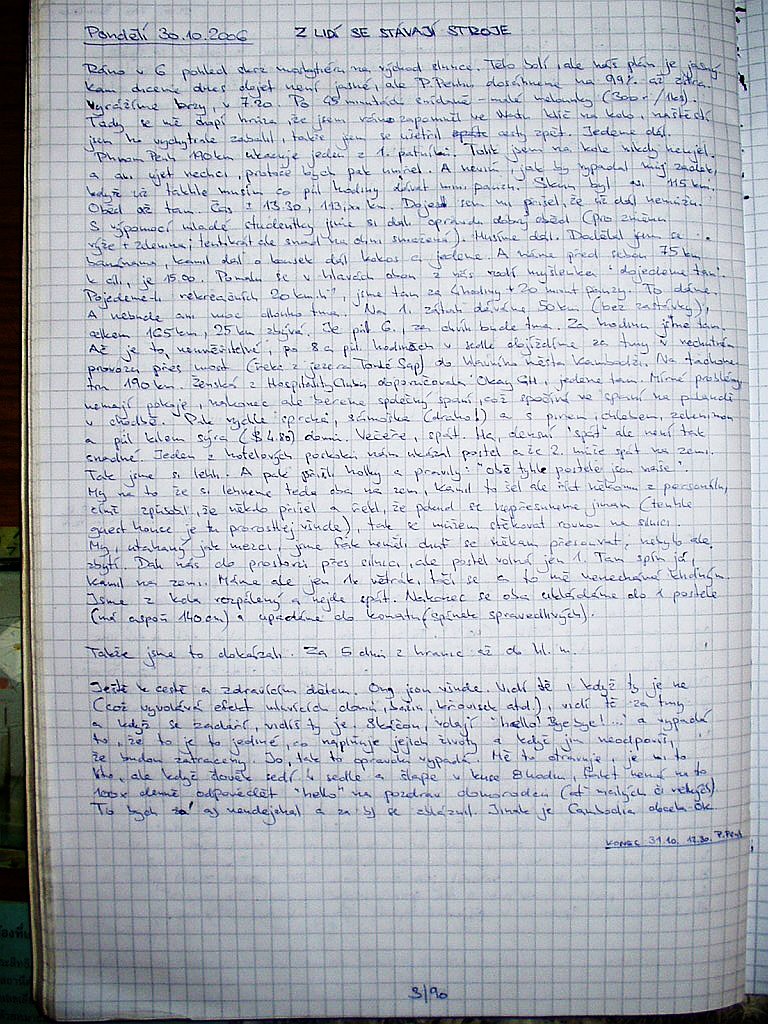 Pondělí 30.10.2006 Z LIDÍ SE STÁVAJÍ STROJE
Ráno v 6 pohled skrz moskytiéru na východ slunce. Tělo bolí, ale náš plán je jasný
kam chceme dnes dojet není jasné, ale P.Penhu dosáhneme na 99% až zítra.
Vyrážíme brzy, v 7.20. Po 45 minutách snídaně - malé (300r/1ks).
Tady se mě chopí hrůza, že jsem zapomněl ve klíč na kolo, naštěstí
jsem ho vychytrale zabalil, takže jsem si ušetřil cesty zpět. Jedeme dál.
Phnom Penh 190km ukazuje jeden z 1. patníků. Tolik jsem na kole nikdy neujel.
a ani ujet nechci, protože bych pak umřel. A nevím, jak by vypadal můj zadek,
když už takhle musím co půl hodiny dávat mini pauzu. Skun byl 115km.
Oběd až tam. Čas 13.30, 113 km. Dojel jsem na pokraji, že už dál nemůžu.
S výpomocí mladé studentky jsme si dali opravdu dobrý oběd (pro změnu
rýže + zelenina, tentokrát ale snad na ohni smažená). Musíme dál. Dodělal jsem se
banánama, Kamil dál o kousek dál kokos a jedeme. A máme před sebou 75km
k cíli, je 15.00. Pomalu se v hlavách obou z nás rodí myšlenka "dojedeme tam".
Pojedeme-li rekreačních 20km.h⁻¹, jsme tam za 4 hodiny + 20 minut pauzy. To dáme.
A nebude ani moc dlouho tma. Na 1. zátah dáváme 50km (bez zastávky),
celkem 165km, 25km zbývá. Je půl 6, za chvíli bude tma. Za hodinu jsme tam.
Až je to neuvěřitelné, po 8 a půl hodinách v sedle dojíždíme za tmy v nechutném
provozu přes most (řeka z jezera Tonlé Sap) do hlavního města Kambodži. Na tachone
tm 190km. Ženská z HospitalityClubu doporučovala Okay GH, jedeme tam. Mírné problémy
nemají pokoje, nakonec ale bereme společný spaní, což spočívá ve spaní na palandě
v chodbě. Pak rychle sprcha, sámoška (draho!) a s pivem, chlebem, zeleninou
a půl kilem sýra ($4.80) domů. Večeře, spát. Ha, dnešní "spát" ale není tak
snadné. Jeden z hotelových poskoků nám ukázal postel a že 2. může spát na zemi.
Tak jsme si lehli. A pak přišli holky a pravily: "obě tyhle postele jsou naše".
My na to že si lehneme teda oba na zem, Kamil to šel ale říct někomu z personálu,
čímž způsobil, že někdo přišel a řekl, že pokud se nepřesuneme jinam (tenhle
guest house je tu prorostlej všude), tak se můžem stěkovat rovnou na silnici.
My, utahaný jak mezci, jsme fakt neměli chuť se někam přesouvat, nebylo ale
zbytí. Dali nás do prostoru přes silnici, ale postel volná jen 1. Tam spím já,
Kamil na zemi. Máme ale jen 1x větrák, točí se a to mě nenechává klidným.
Jsme z kola rozpálený a nejde spát. Nakonec se oba ukládáme do 1 postele
(má aspoň 140cm) a upadáme do komatu (spánek spravedlivých).
Takže jsme to dokázali. Za 5 dní z hranic až do hl. m.
Ještě k cestě a zdravícím dětem. Ony jsou všude. Vidí tě i když ty je ne
(což vyvolává efekt mluvících domů, bažin, křovisek atd.), vidí tě za tmy
a když se zadaří, vidíš ty je. Skáčou, volají "hello! Bye bye!..." a vypadá
to, že to je to jediné, co naplňuje jejich životy a když jim neodpovíš,
že budou zatraceny. Jo, tak to opravdu vypadá. Mě to otravuje, je mi to
líto, ale když člověk sedí v sedle a šlape v kuse 8 hodin, fakt nemá na to
100x denně odpovědět "hello" na pozdrav domorodců (ať malých či velkých).
To bych aj nendojechal a za by se zbláznil. Jinak je Cambodia docela OK.
KONEC 31.10. 12.30. P.Penh
3/90